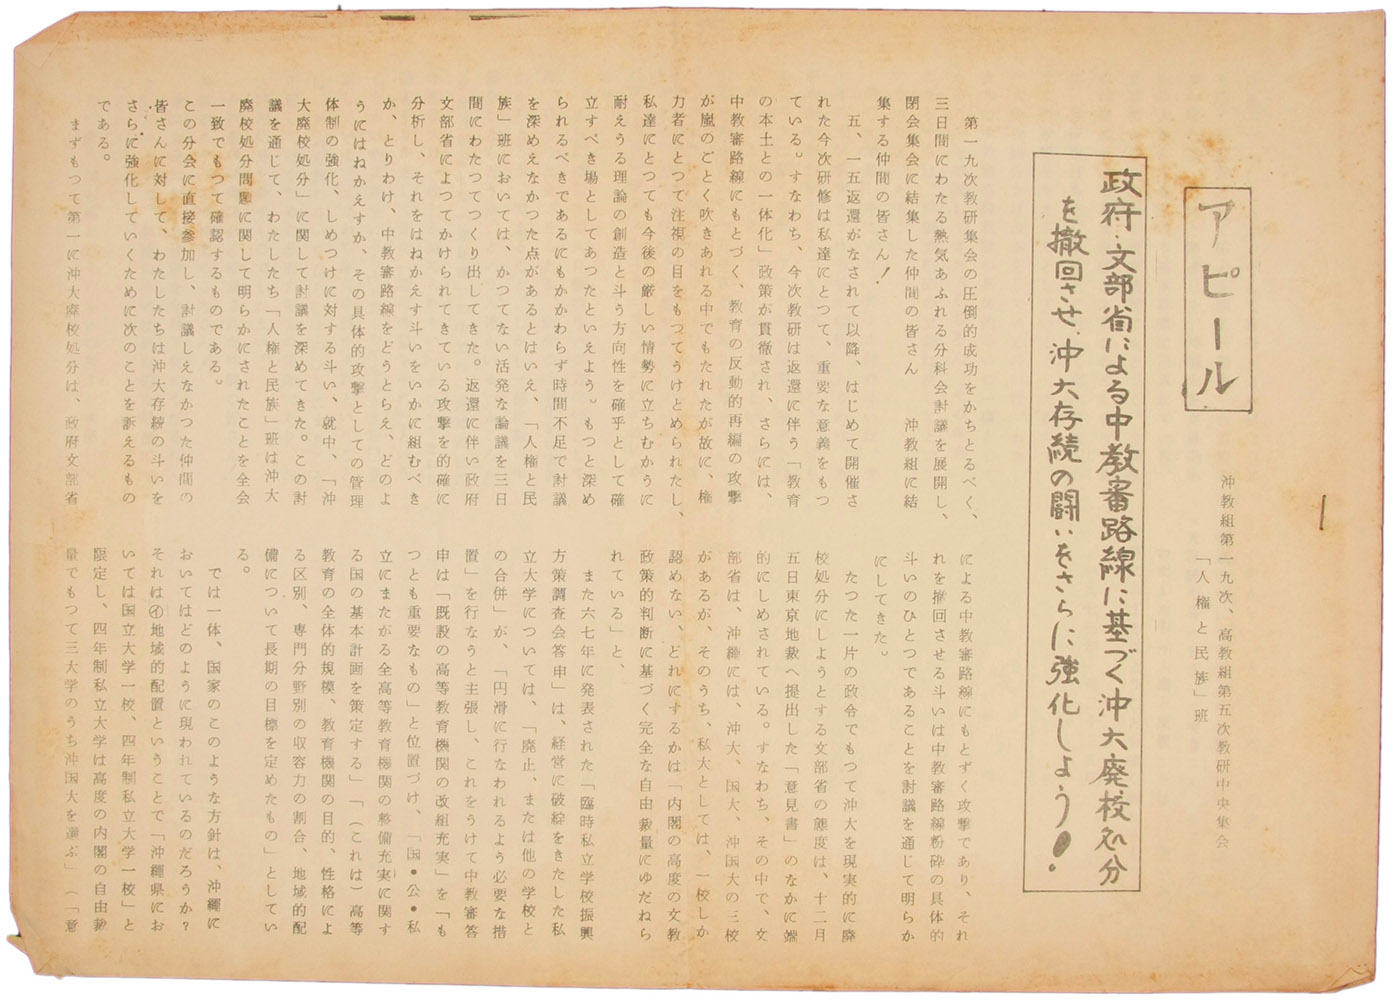 アピール
沖教組第一九次、高教組第五次教研中央集会
「人権と民族」班
政府・文部省による中教審路線に基づく沖大廃校処分
を撤回させ、沖大存続の闘いをさらに強化しよう!
第一九次教研集会の圧倒的成功をかちとるべく、
三日間にわたる熱気あふれる分科会討議を展開し、
閉会集会に結集した仲間の皆さん 沖教組に結
集する仲間の皆さん!
五、一五返還がなされて以降、はじめて開催さ
れた今次研修は私達にとつて、重要な意義をもつ
ている。すなわち、今次教研は返還に伴う「教育
の本土との一体化」政策が貫徹され、さらには、
中教審路線にもとづく、教育の反動的再編の攻撃
が嵐のごとく吹きあれる中でもたれたが故に、権
力者にとつて注視の目をもつてうけとめられたし、
私達にとつても今後の厳しい情勢に立ちむかうに
耐えうる理論の創造と斗う方向性を確乎として確
立すべき場としてあつたといえよう。もつと深め
られるべきであるにもかかわらず時間不足で討議
を深めえなかつた点があるとはいえ、「人権と民
族」班においては、かつてない活発な論議を三日
間にわたつてつくり出してきた。返還に伴い政府
文部省によつてかけられてきている攻撃を的確に
分析し、それをはねかえす斗いをいかに組むべき
か、とりわけ、中教審路線をどうとらえ、どのよ
うにはねかえすか、その具体的攻撃としての管理
体制の強化、しめつけに対する斗い、就中、「沖
大廃校処分」に関して討議を深めてきた。この討
議を通じて、わたしたち「人権と民族」班は沖大
廃校処分問題に関して明らかにされたことを全会
一致でもつて確認するものである。
この分会に直接参加し、討議しえなかつた仲間の
皆さんに対して、わたしたちは沖大存続の斗いを
さらに強化していくために次のことを訴えるもの
である。
まずもつて第一に沖大廃校処分は、政府文部省
による中教審路線にもとずく攻撃であり、それ
れを撤回させる斗いは中教審路線粉砕の具体的
斗いのひとつであることを討議を通じて明らか
にしてきた。
たつた一片の政令でもつて沖大を現実的に廃
校処分にしようとする文部省の態度は、十二月
五日東京地裁へ提出した「意見書」のなかに端
的にしめされている。すなわち、その中で、文
部省は、沖縄には、沖大、国大、沖国大の三校
があるが、そのうち、私大としては、一校しか
認めない、どれにするかは「内閣の高度の文教
政策的判断に基づく完全な自由裁量にゆだねら
れている」と、
また六七年に発表された「臨時私立学校振興
方策調査会答申」は、経営に破綻をきたした私
立大学については、「廃止、または他の学校と
の合併」が、「円滑に行なわれるよう必要な措
置」を行なうと主張し、これをうけて中教審答
申は「既設の高等教育機関の改組充実」を「も
つとも重要なもの」と位置づけ、「国・公・私
立にまたがる全高等教育機関の整備充実に関す
る国の基本計画を策定する」「(これは)高等
教育の全体的規模、教育機関の目的、性格によ
る区別、専門分野別の収容力の割合、地域的配
備について長期の目標を定めたもの」としてい
る。
では一体、国家のこのような方針は、沖縄に
おいてはどのように現われているのだろうか?
それは㋑地域的配置ということで「沖縄県にお
いては国立大学一校、四年制私立大学一校」と
限定し、四年制私立大学は高度の内閣の自由裁
量でもつて三大学のうち沖国大を選ぶ」(「意